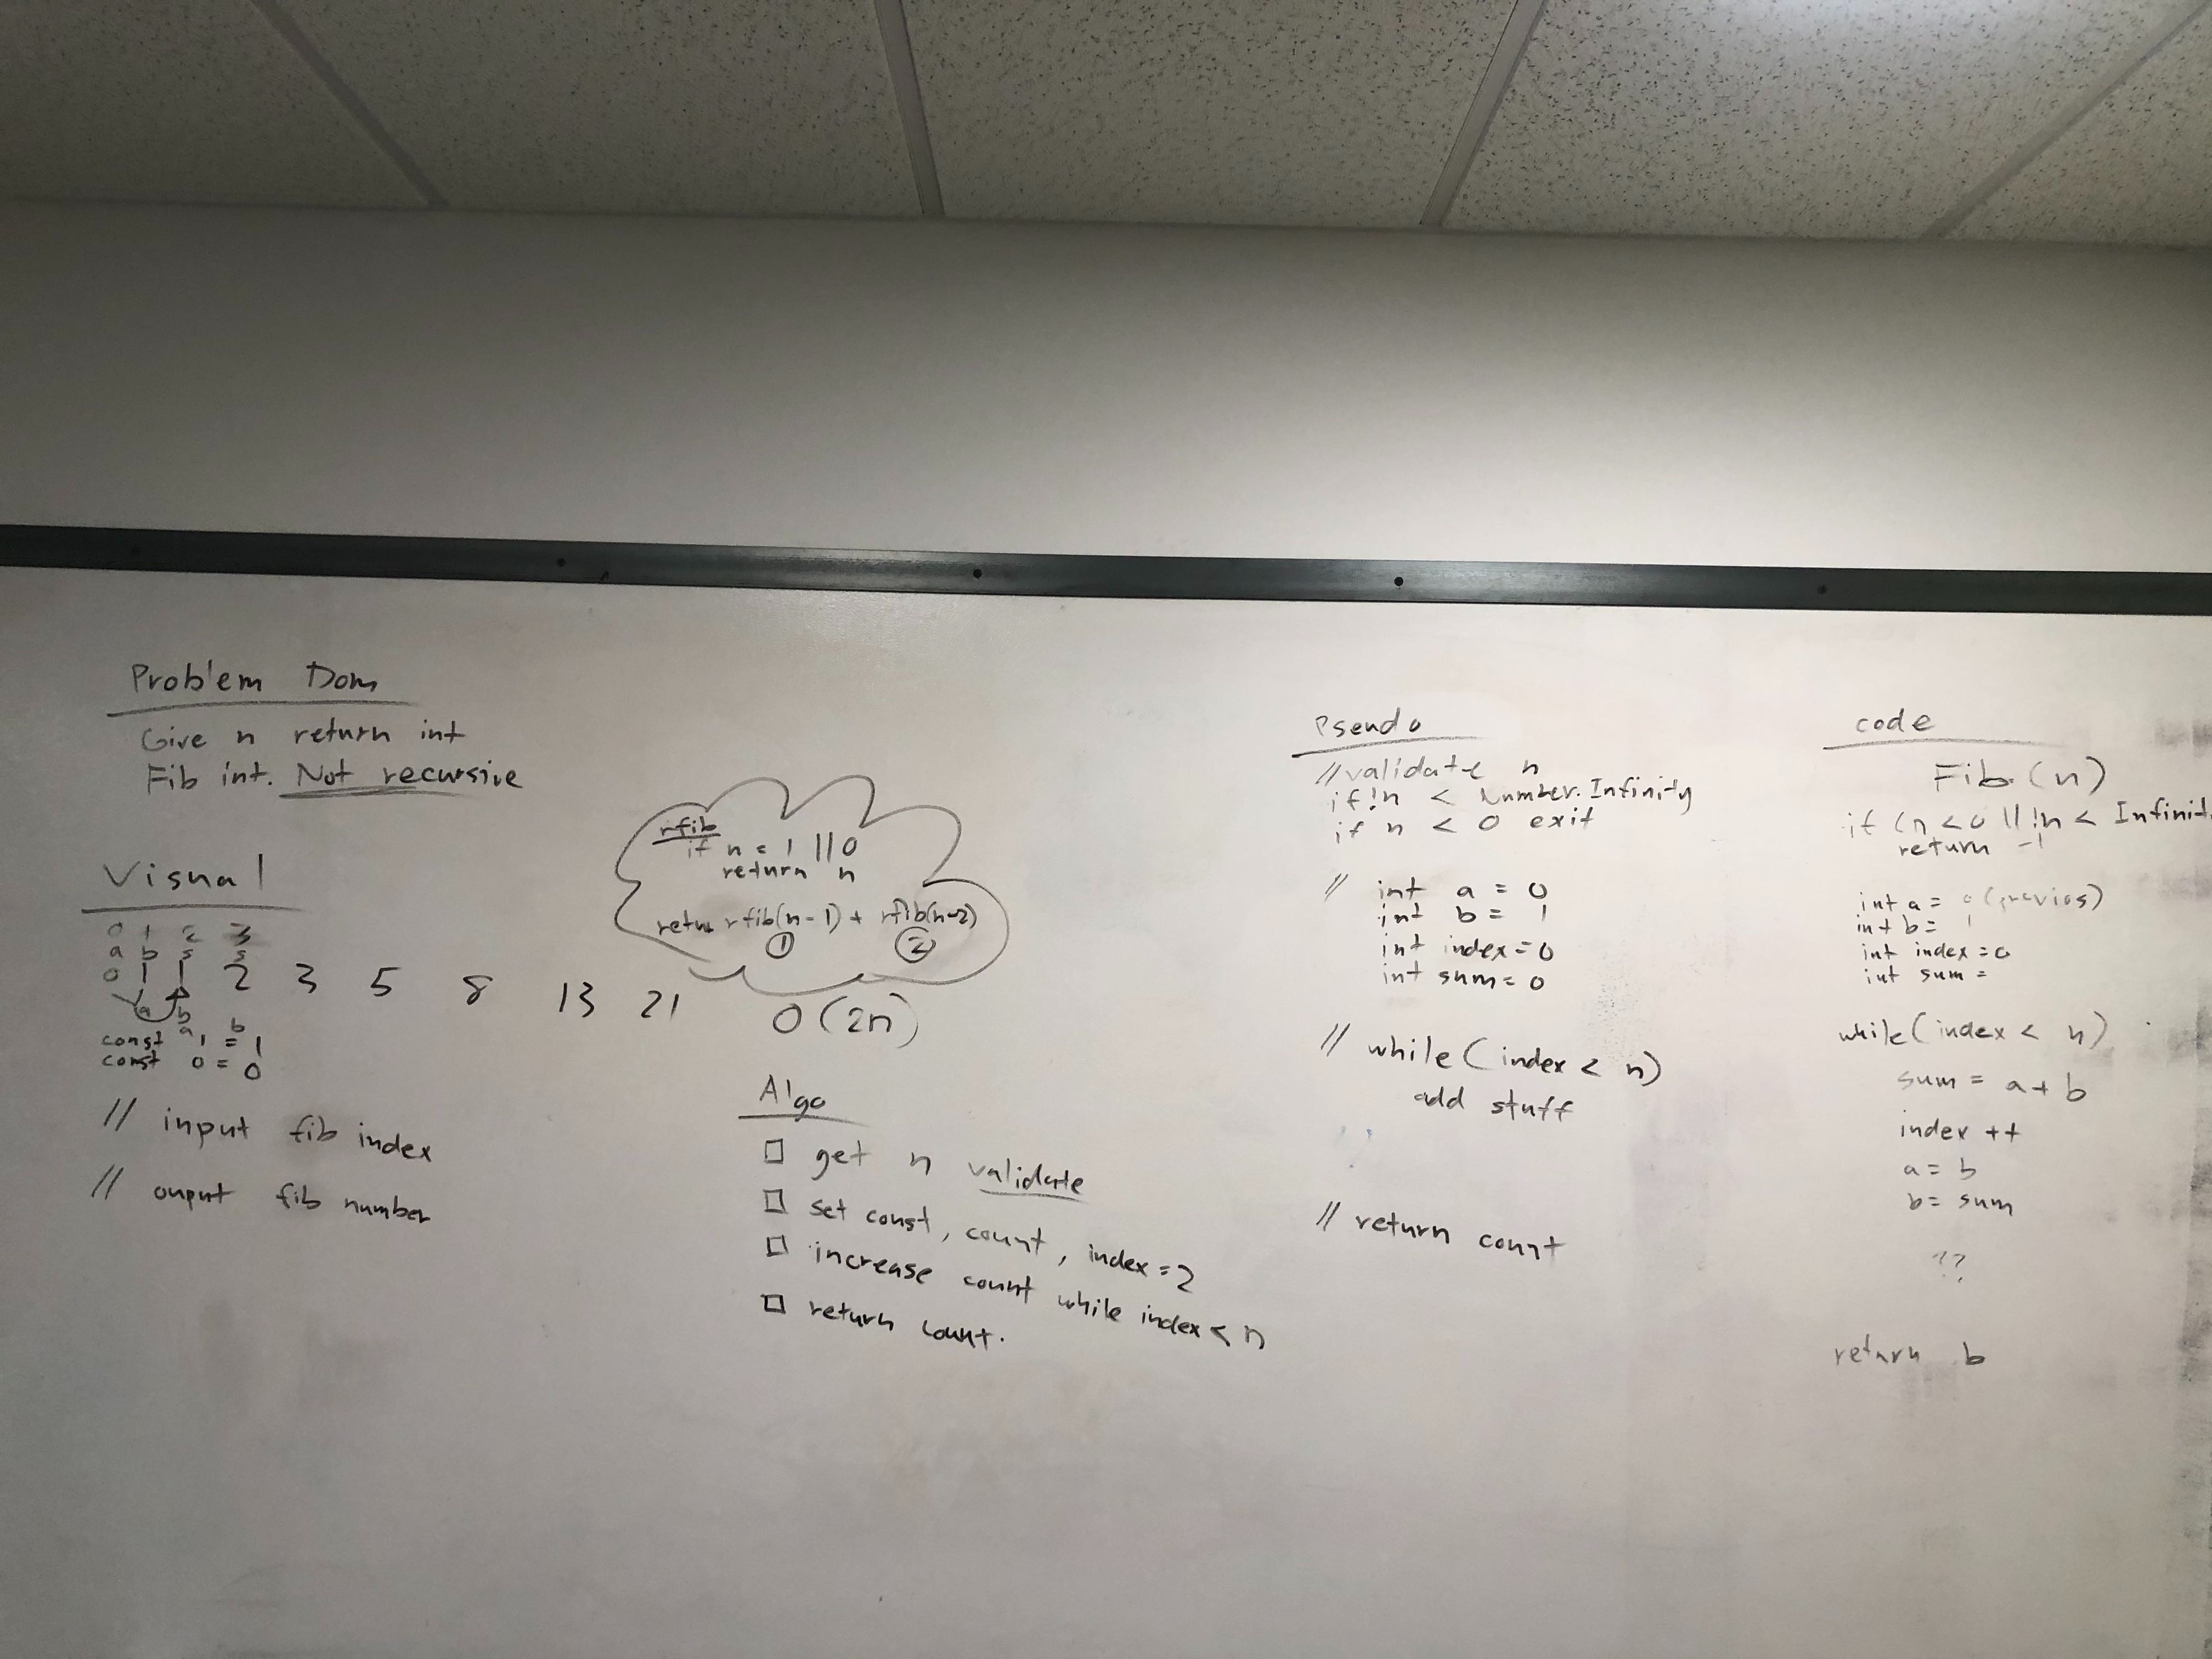 Problem Dom
Give n return int
Fib int. Not recursive
Visual
0 1 2 3
a b s s
0 1 1 2 3 5 8 13 21
a b
a b
const 1 = 1
const 0 = 0
// input fib index
// ouput fib number
rfib
if n = 1 || 0
return n
retur rfib(n-1) + rfib(n-2)
1 2
O(2n)
Algo
get n validate
set const, count, index=2
increase count while index < n
return count.
Pseudo
//validate n
if !n < Number.Infinity
if n < 0 exit
// int a = 0
int b = 1
int index=0
int sum=0
// while(index < n)
add stuff
// return count
code
Fib(n)
if (n <0 || !n < Infinit
return -1
int a = 0 (previos)
int b = 1
int index =0
int sum =
while(index < n)
sum = a + b
index ++
a = b
b = sum
??
return b